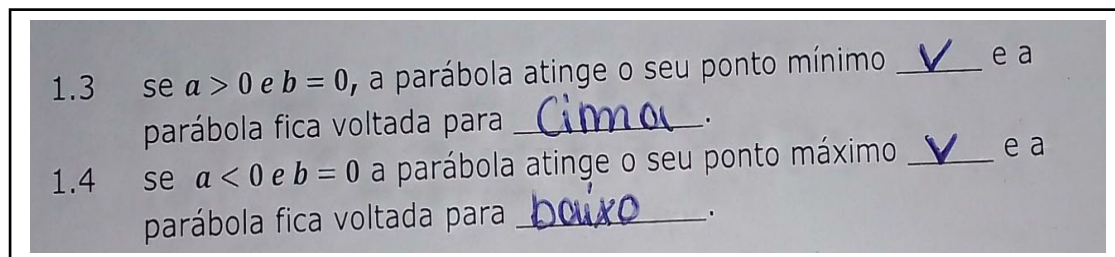 1.3 se a > 0 e b = 0, a parábola atinge o seu ponto mínimo V e a
parábola fica voltada para Cima.
1.4 se a < 0 e b = 0 a parábola atinge o seu ponto máximo V e a
parábola fica voltada para baixo.